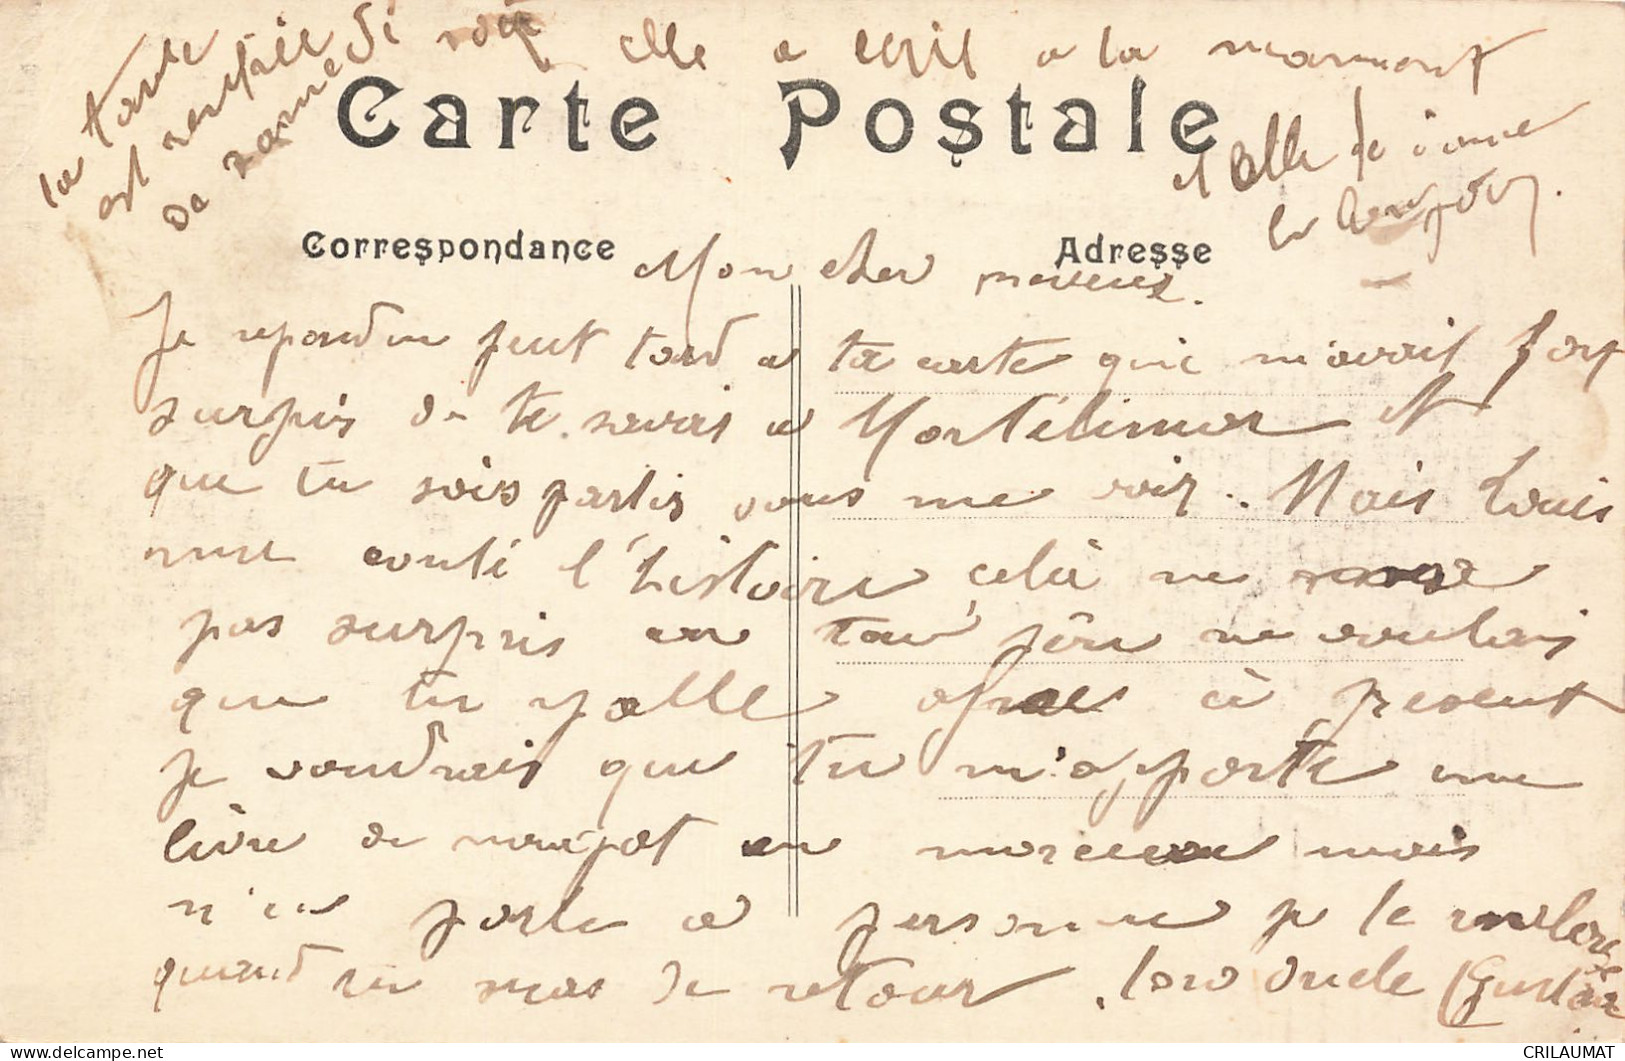 la tante
est rentrée
de
elle a écrit a la mamant
Carte Postale
et elle te donne
le bonjour.
Correspondance
Adresse
Mon cher neveux.
Je repond un peut tard a ta carte qui m'avait fort
surpris de te savais a Montélimar et
que tu sois partis sans me voir. Mais Louis
me conté l'histoire celà ne
pas surpris car ton père ne voulais
que tu y alle à present
Je voudrais que tu m'apporte une
livre de nougat en morceau mais
n'en parle a personne je te
quand tu seras de retour. ton oncle Gustave
CRILAUMAT